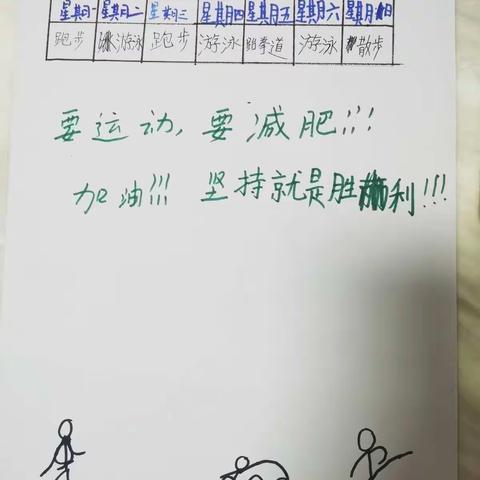 星期一 星期二 星期三 星期四 星期五 星期六 星期日
跑步 游泳 跑步 游泳 跆拳道 游泳 散步
要运动，要减肥!!!
加油!!! 坚持就是胜利!!!